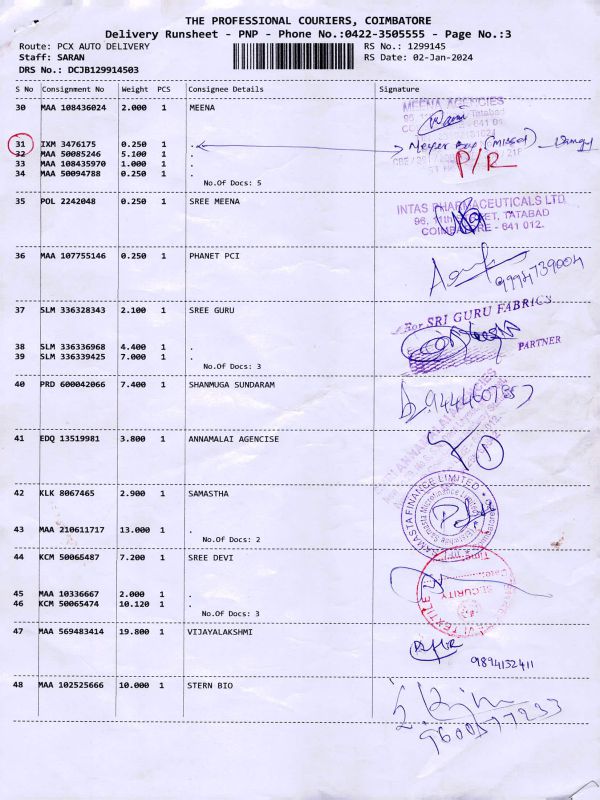 THE PROFESSIONAL COURIERS, COIMBATORE
Delivery Runsheet - PNP - Phone No.:0422-3505555 - Page No.:3
Route: PCX AUTO DELIVERY RS No.: 1299145
Staff: SARAN RS Date: 02-Jan-2024
DRS No.: DCJB129914503
S No Consignment No Weight PCS Consignee Details Signature
30 MAA 108436024 2.000 1 MEENA
MEENA AGENCIES
31 IXM 3476175 0.250 1 . Meyer Box (missed)
32 MAA 50085246 5.100 1 . P/R
33 MAA 108435970 1.000 1 .
34 MAA 50094788 0.250 1 .
No.Of Docs: 5
35 POL 2242048 0.250 1 SREE MEENA
INTAS PHARMACEUTICALS LTD
96, 11th STREET, TATABAD
COIMBATORE - 641 012.
36 MAA 107755146 0.250 1 PHANET PCI
9994739004
37 SLM 336328343 2.100 1 SREE GURU
For SRI GURU FABRICS
38 SLM 336336968 4.400 1 .
PARTNER
39 SLM 336339425 7.000 1 .
No.Of Docs: 3
40 PRD 600042066 7.400 1 SHANMUGA SUNDARAM
41 EDQ 13519981 3.800 1 ANNAMALAI AGENCISE
1
42 KLK 8067465 2.900 1 SAMASTHA
SAMASTA FINANCE LIMITED
43 MAA 210611717 13.000 1 .
No.Of Docs: 2
44 KCM 50065487 7.200 1 SREE DEVI
SECURITY
45 MAA 10336667 2.000 1 .
46 KCM 50065474 10.120 1 .
No.Of Docs: 3
47 MAA 569483414 19.800 1 VIJAYALAKSHMI
9894132411
48 MAA 102525666 10.000 1 STERN BIO